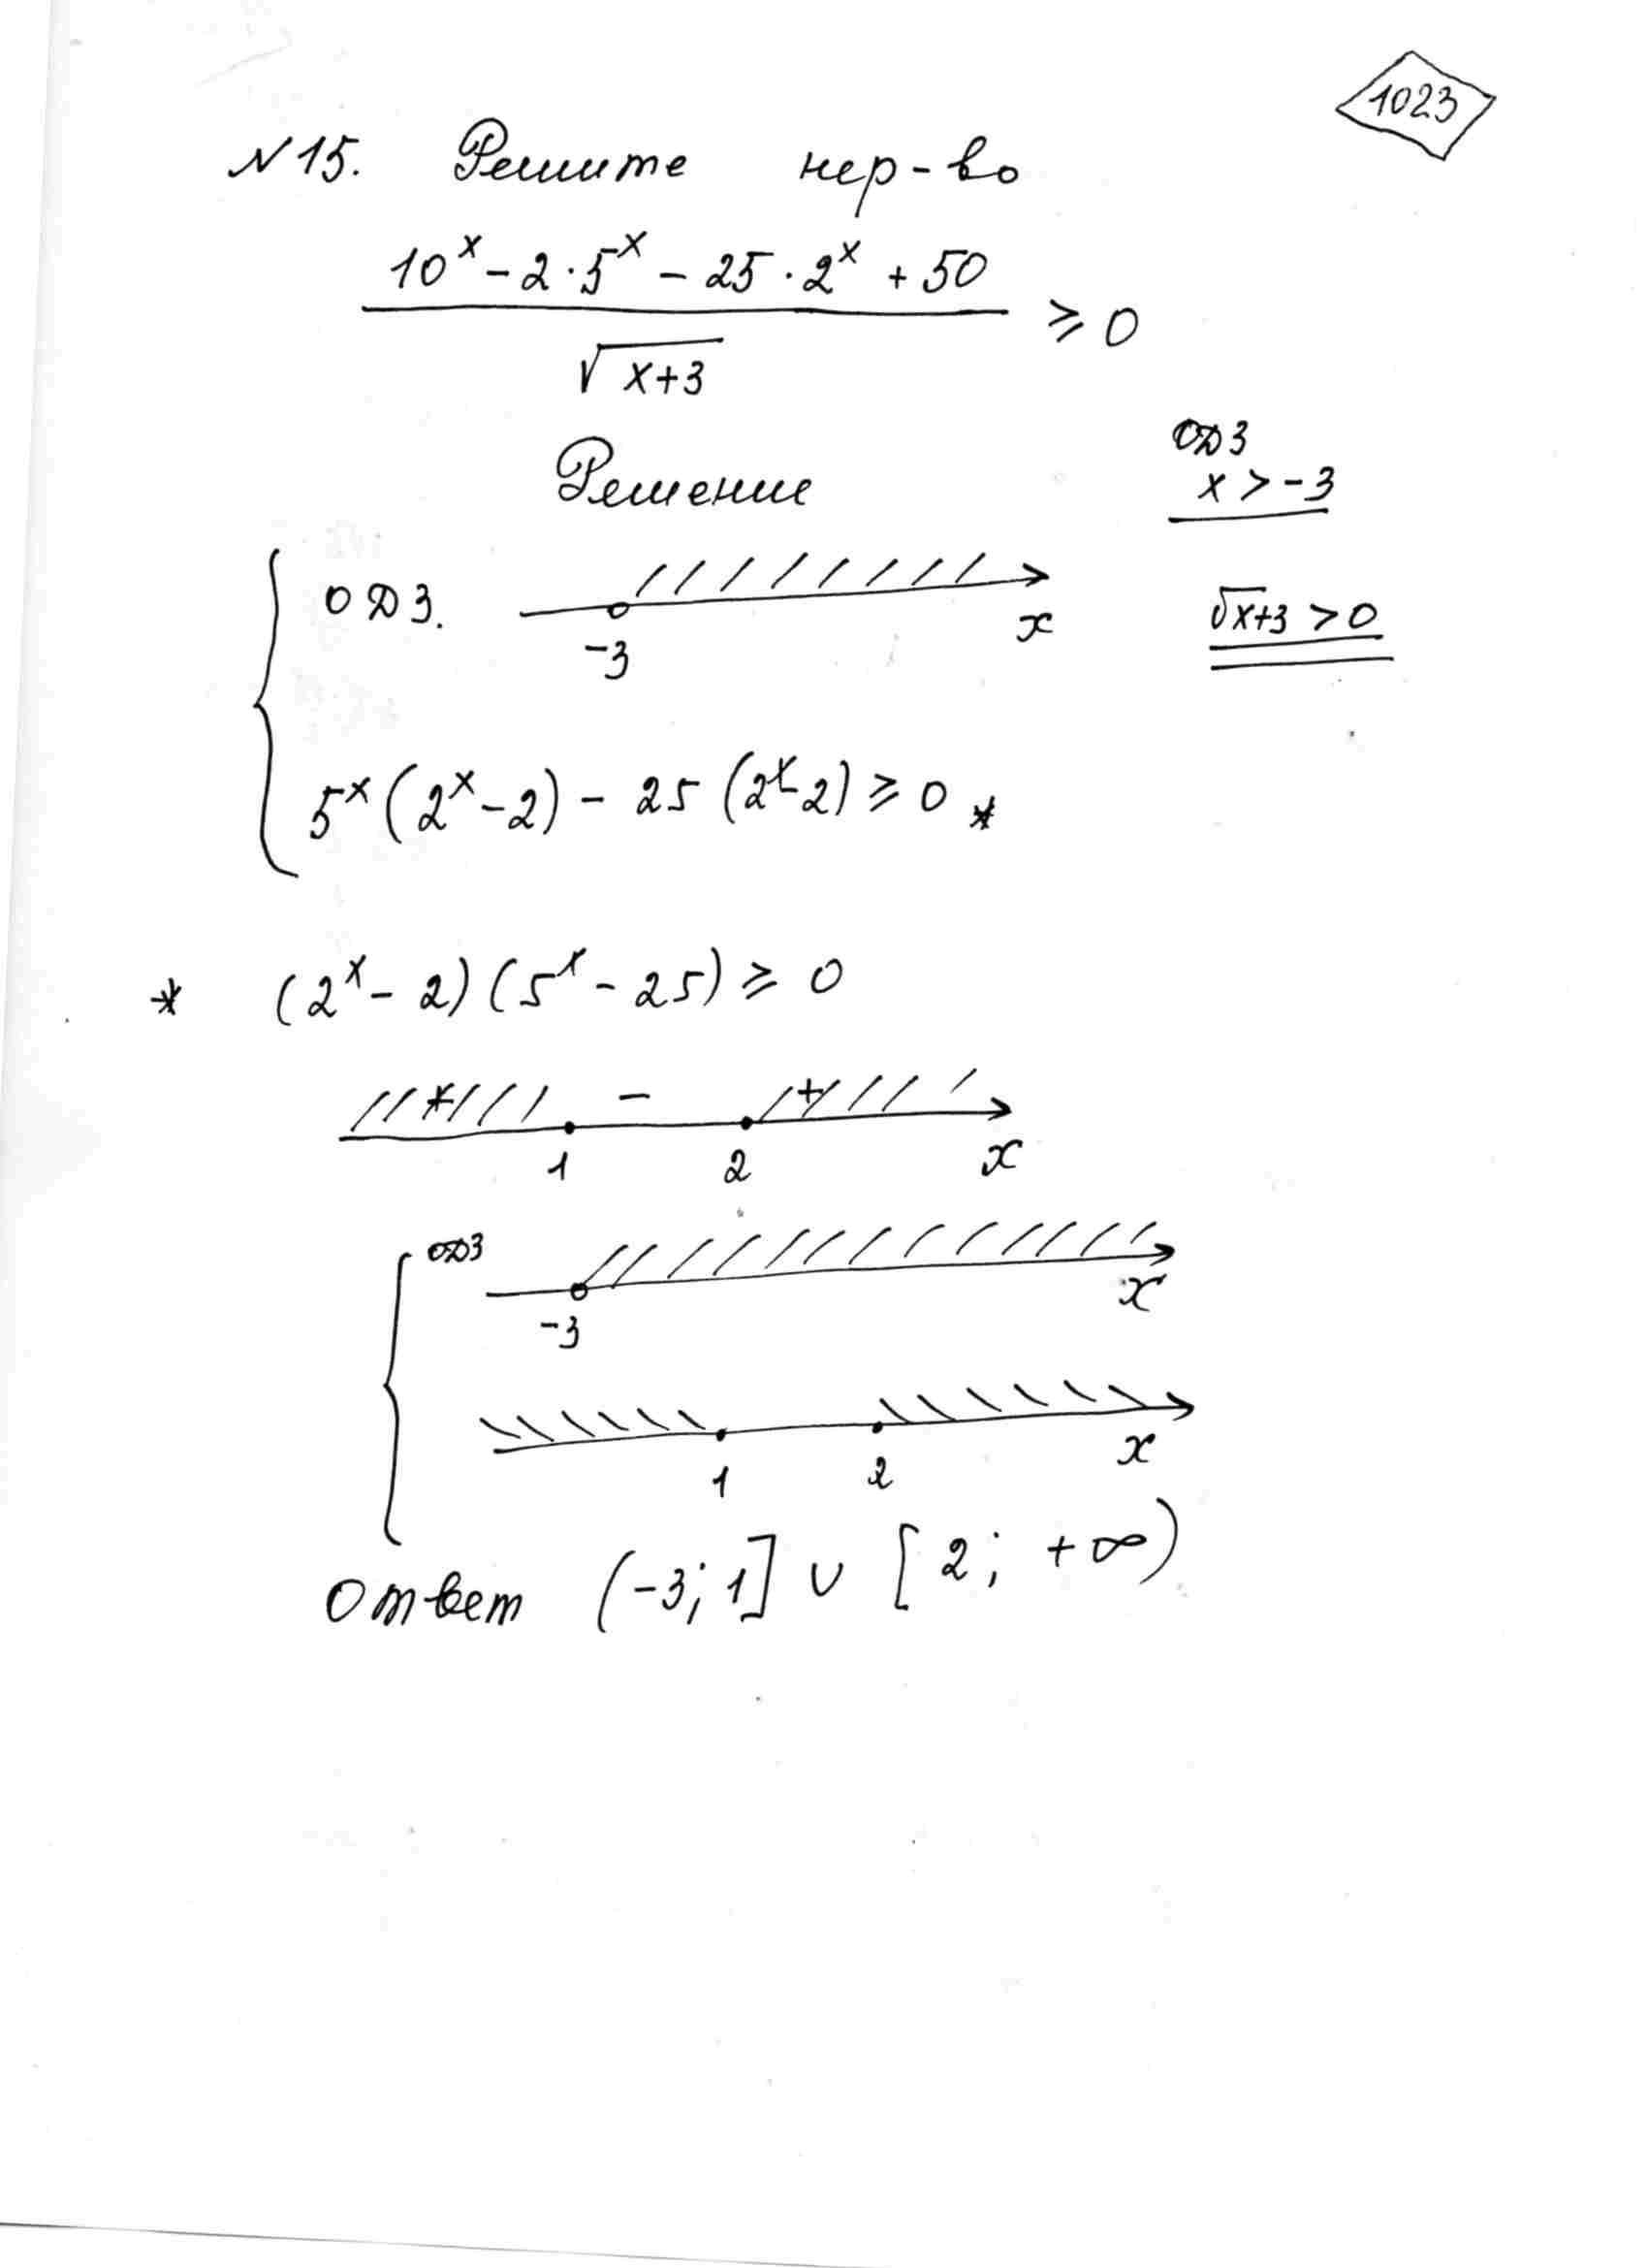 1023
N 15. Решите нер-во
10^x - 2 · 5^x - 25 · 2^x + 50
≥ 0
√x+3
ОДЗ
x > -3
Решение
ОДЗ.
-3
x
√x+3 > 0
5^x (2^x - 2) - 25 (2^x - 2) ≥ 0 *
* (2^x - 2) (5^x - 25) ≥ 0
+ - +
1 2 x
ОДЗ
-3 x
1 2 x
Ответ (-3; 1] ∪ [2; +∞)